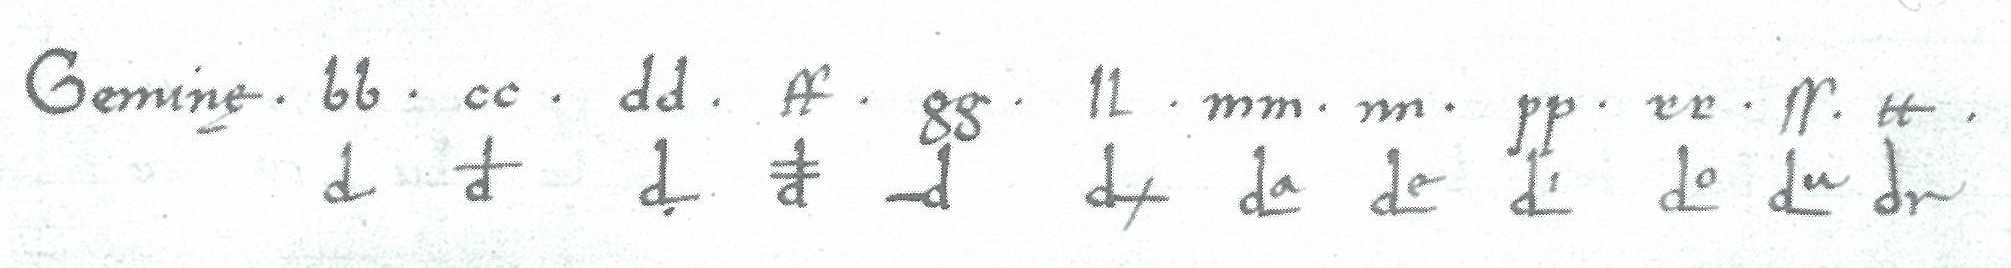 Geminę · bb · cc · dd · ff · gg · ll · mm · nn · pp · rr · ſſ · tt ·
d d d d d d da de di do du dr